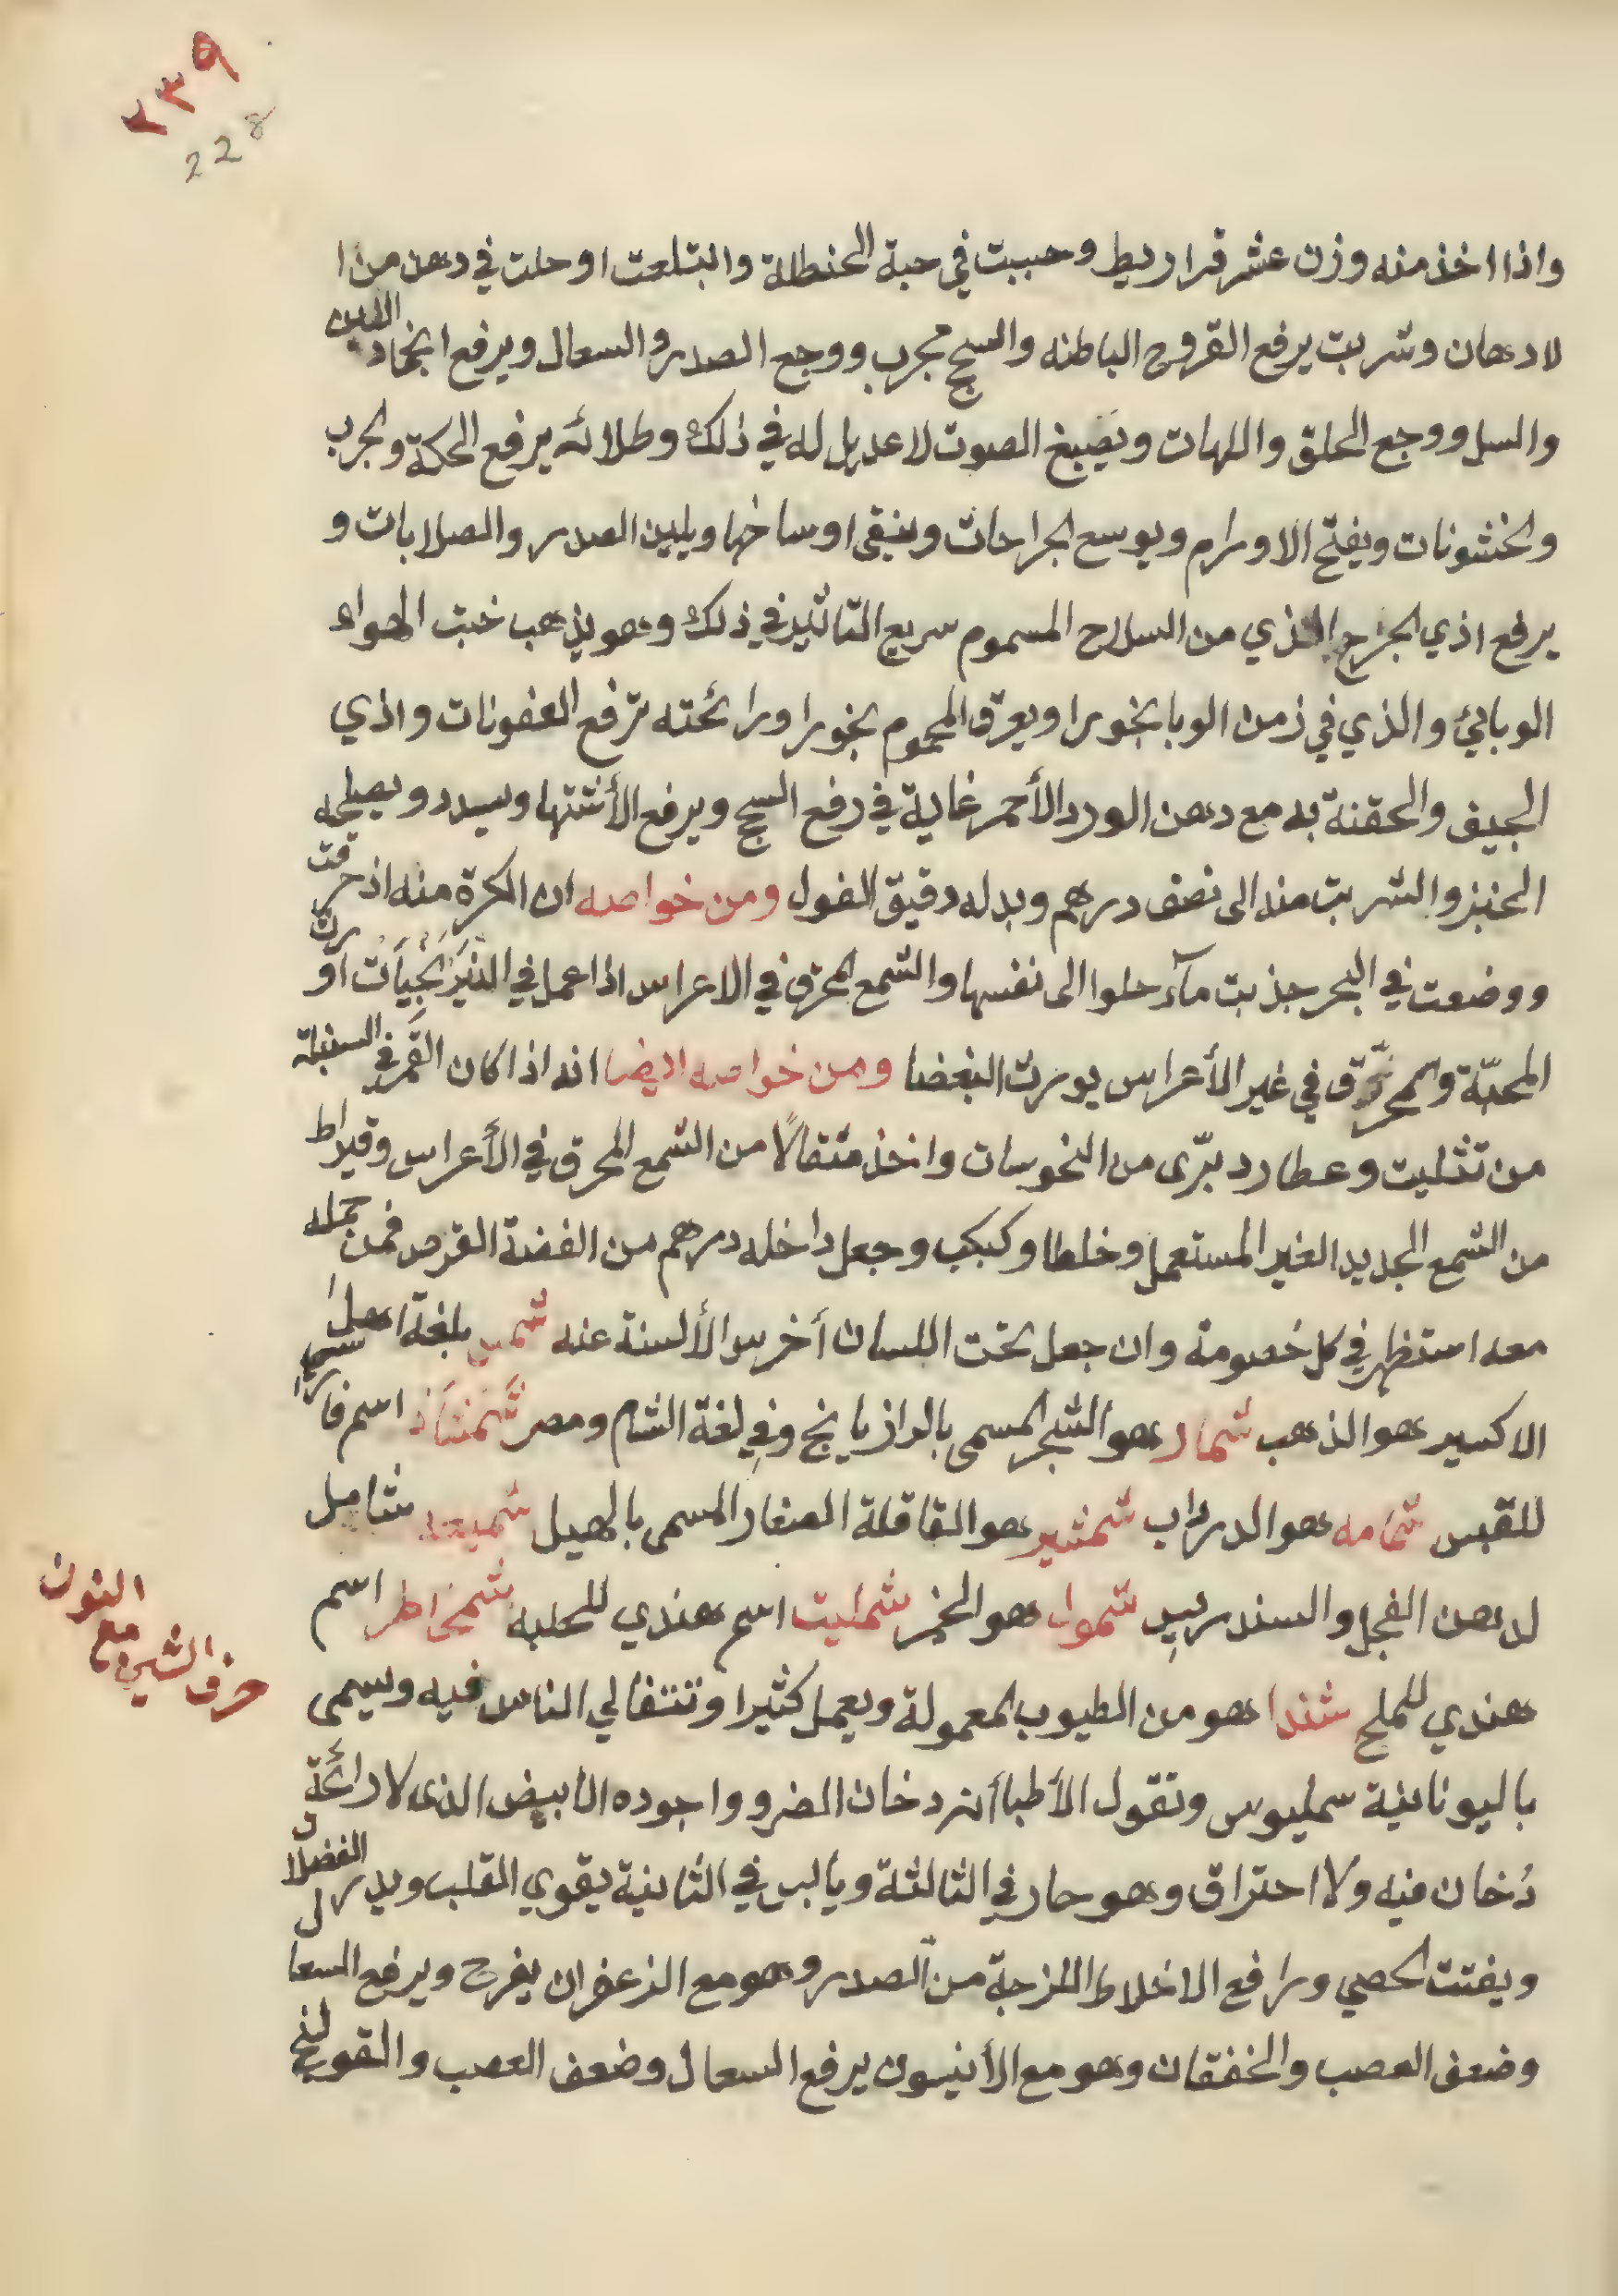 ٢٣٩
228
واذا اخذ منه وزن عشر قراريط وحببت في حبة الحنطلة وابتلعت او حلت في دهن من ا
لادهان وشربت يرفع القروح الباطنه والسحج مجرب ووجع الصدر والسعال ويرفع انجماد اللبن
والسل ووجع الحلق واللهات ويصبغ الصوت لا عديل له في ذلك وطلائه يرفع الحكة والجرب
والخشونات ويفتح الاورام ويوسع الجراحات وينقى اوساخها ويلين الصدر والصلابات و
يرفع اذي الجرح الذي من السلاح المسموم سريع التاثير في ذلك وهو يذهب خبت الهواء
الوبائي والذي في زمن الوبا بخورا ويعرق المحموم بخورا ورائحته ترفع العفونات واذي
الجيف والحقنة به مع دهن الورد الأحمر غاية في رفع السحج ويرفع الأشتها ويسدد ويصلحه
الخبز والشربت منه الى نصف درهم وبدله دقيق الفول ومن خواصه ان الكرة منه اذ حرقت
ووضعت في البحر جذبت مآء حلوا الى نفسها والشمع المحرق في الاعراس اذا عمل في النيرنجيات اورث
المحبّة والمحرّق في غير الأعراس يورث البغضا ومن خواصه ايضا انه اذا كان القمر في السنبلة
من تثليث وعطارد برّى من النحوسات واخذ مثقالًا من الشمع المحرق في الأعراس وقيراط
من الشمع الجديد الغير المستعمل وخلطا وكبكب وجعل داخله درهم من الفضة القرص فمن حمله
معه استظهر في كل خصومة وان جعل تحت اللسان أخرس الألسنة عنه شمس بلغة اهل
الاكسير هو الذهب شمار هو الشجر المسمى بالرازيانج وفي لغة الشام ومصر شَمشَاذ اسم فارسي
للقبس شمامه هو الدرياب شمشير هو القاقلة الصغار المسمى بالهيل شميعه شامل
لدهن الفجل والسندريد شمول هو الخمر شمليت اسم هندي للحلبه شمخاطر اسم
هندي للملح شندا هو من الطيوب المعمولة ويعمل كثيرا وتتفالي الناس فيه ويسمى
حرف الشين مع النون
باليونانية سمليوس وتقول الأطبا أنه دخان الضرو واجوده الابيض الذى لا رائحة
دُخان فيه ولا احتراق وهو حار في الثالثة ويابس في الثانية يقوي القلب ويدر الفضلات
ويفتت الحصي ورافع الاخلاط اللزجة من الصدر وهو مع الزعفران يفرح ويرفع السعال
وضعف العصب والخفقان وهو مع الأنيسون يرفع السعال وضعف العصب والقولنج